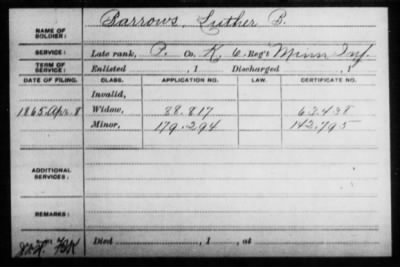 Barrows, Luther B.
NAME OF SOLDIER:
SERVICE: Late rank, P. Co. K, 6 Reg't Minn Inf.
TERM OF SERVICE: Enlisted , 1 Discharged , 1
DATE OF FILING. CLASS. APPLICATION NO. LAW. CERTIFICATE NO.
Invalid,
1865, Apr. 8 Widow, 88.817 63.438
Minor, 179.294 142.795
ADDITIONAL SERVICES:
REMARKS:
Died , 1 , at